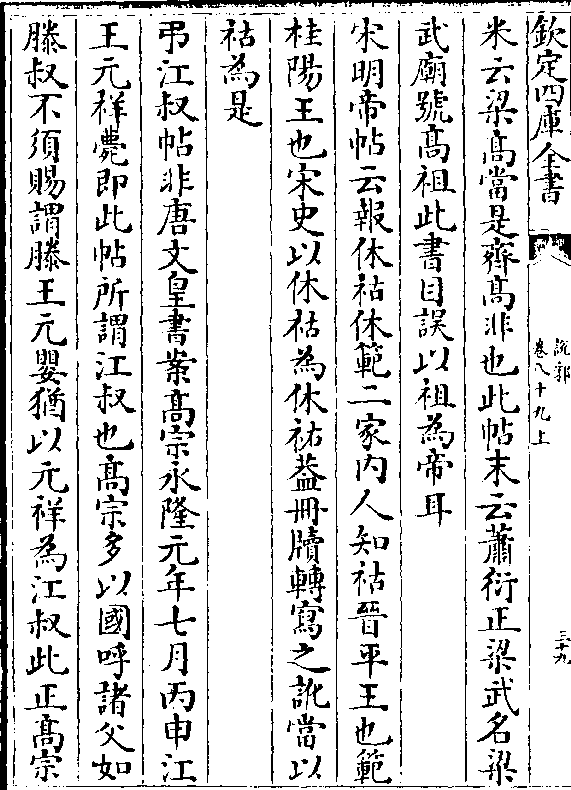 欽定四庫全書
說郛
卷八十九上
三十九
米云梁髙當是齊髙非也此帖末云蕭衍正梁武名梁
武廟號髙祖此書目誤以祖為帝耳
宋明帝帖云報休祜休範二家内人知祜晉平王也範
桂陽王也宋史以休祜為休祐葢冊牘轉寫之訛當以
祜為是
弔江叔帖非唐文皇書案髙宗永隆元年七月丙申江
王元祥薨即此帖所謂江叔也髙宗多以國呼諸父如
滕叔不須賜謂滕王元嬰猶以元祥為江叔此正髙宗